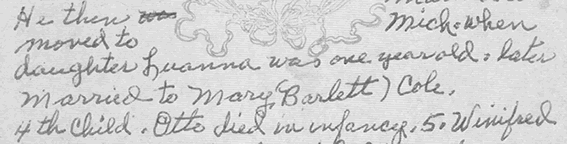 He then was Mich. when
moved to
daughter Luanna was one year old. later
married to Mary (Barlett) Cole.
4th child. Otto died in infancy. 5. Winifred